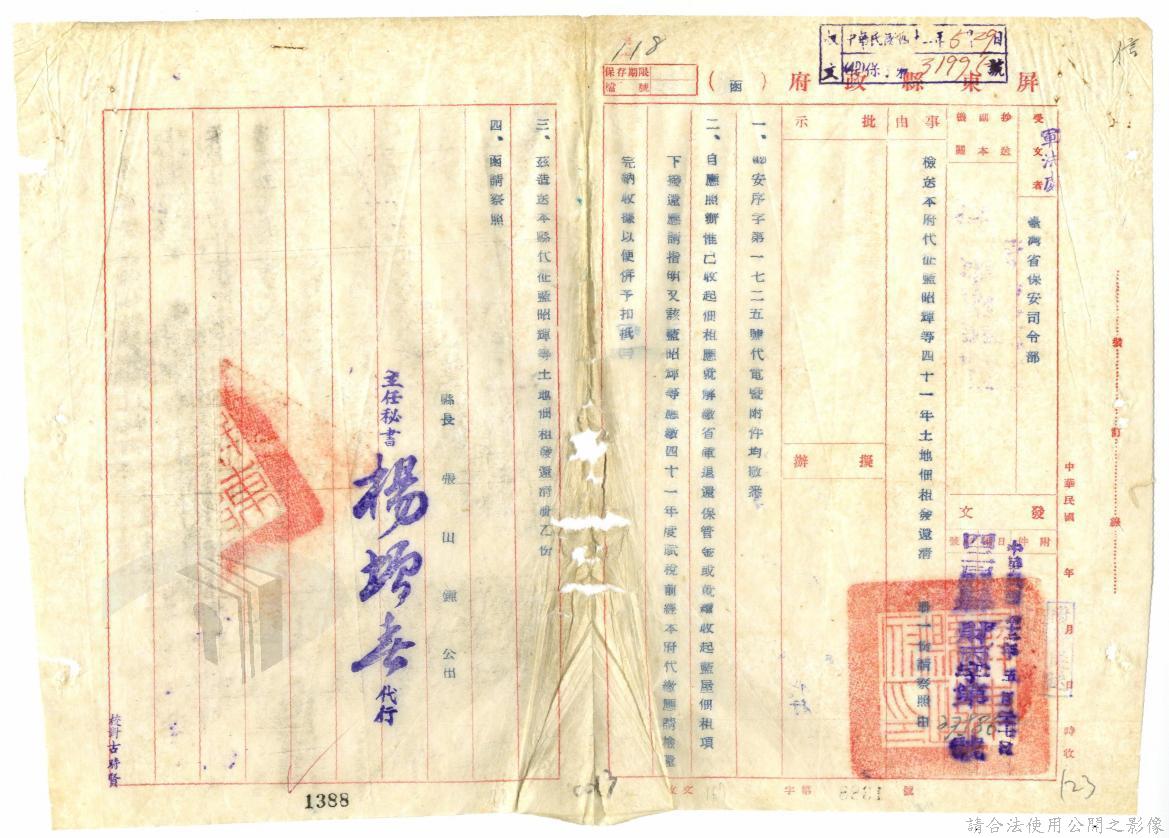 118
中華民國四十二年5月29日
收文
31996號
保存期限
檔號
屏東縣政府(函)
受文者
軍法處
臺灣省保安司令部
抄送副本機關
事由
檢送本府代征藍昭輝等四十一年土地佃租發還清冊一份請察照由
批示
擬辦
發文
附件
日期
字號
中華民國四十二年五月
字第
號
一、安序字第一七二五號代電暨附件均敬悉
二、自應照辦惟已收起佃租應就解繳省電退還保管金或就續收起藍屋佃租項
下發還應請指明又該藍昭輝等應繳四十一年度賦稅前經本府代繳應請檢還
完納收據以便併予扣抵
三、茲造送本縣代征藍昭輝等土地佃租發還清冊乙份
四、函請察照
縣長 張山鐘 公出
主任秘書 楊增春 代行
校對古時賢
裝
訂
線
中華民國 年 月 日 時收
收文
字第
號
1388
0013
123
請合法使用公開之影像